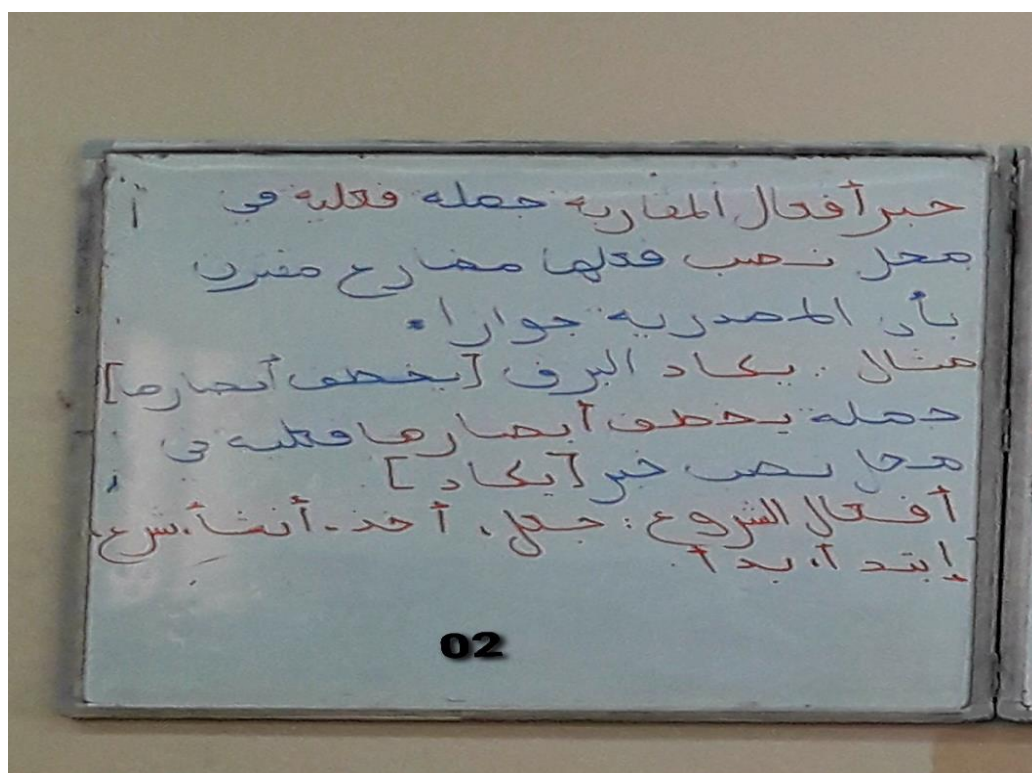 خبر أفعال المقاربة جملة فعلية في
محل نصب فعلها مضارع مقترن
بأن المصدرية جوازا.
مثال : يكاد البرق [يخطف أبصارها]
جملة يخطف أبصارها فعلية في
محل نصب خبر [يكاد]
أفعال الشروع : جعل، أخذ، أنشأ، شرع،
إبتدأ، بدأ
02